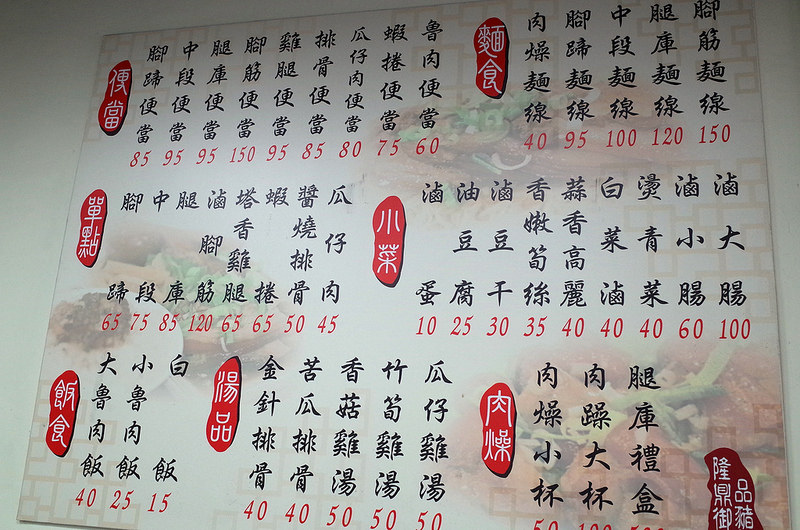 便當
腳蹄便當 85
中段便當 95
腿庫便當 95
腳筋便當 150
雞腿便當 95
排骨便當 85
瓜仔肉便當 80
蝦捲便當 75
魯肉便當 60
麵食
肉燥麵線 40
腳蹄麵線 95
中段麵線 100
腿庫麵線 120
腳筋麵線 150
單點
腳蹄 65
中段 75
腿庫 85
滷腳筋 120
塔香雞腿 65
蝦捲 65
醬燒排骨 50
瓜仔肉 45
小菜
滷蛋 10
油豆腐 25
滷豆干 30
香嫩筍絲 35
蒜香高麗 40
白菜滷 40
燙青菜 40
滷小腸 60
滷大腸 100
飯食
大魯肉飯 40
小魯肉飯 25
白飯 15
湯品
金針排骨 40
苦瓜排骨 40
香菇雞湯 50
竹筍雞湯 50
瓜仔雞湯 50
肉燥
肉燥小杯 50
肉躁大杯 100
腿庫禮盒
隆鼎御品豬